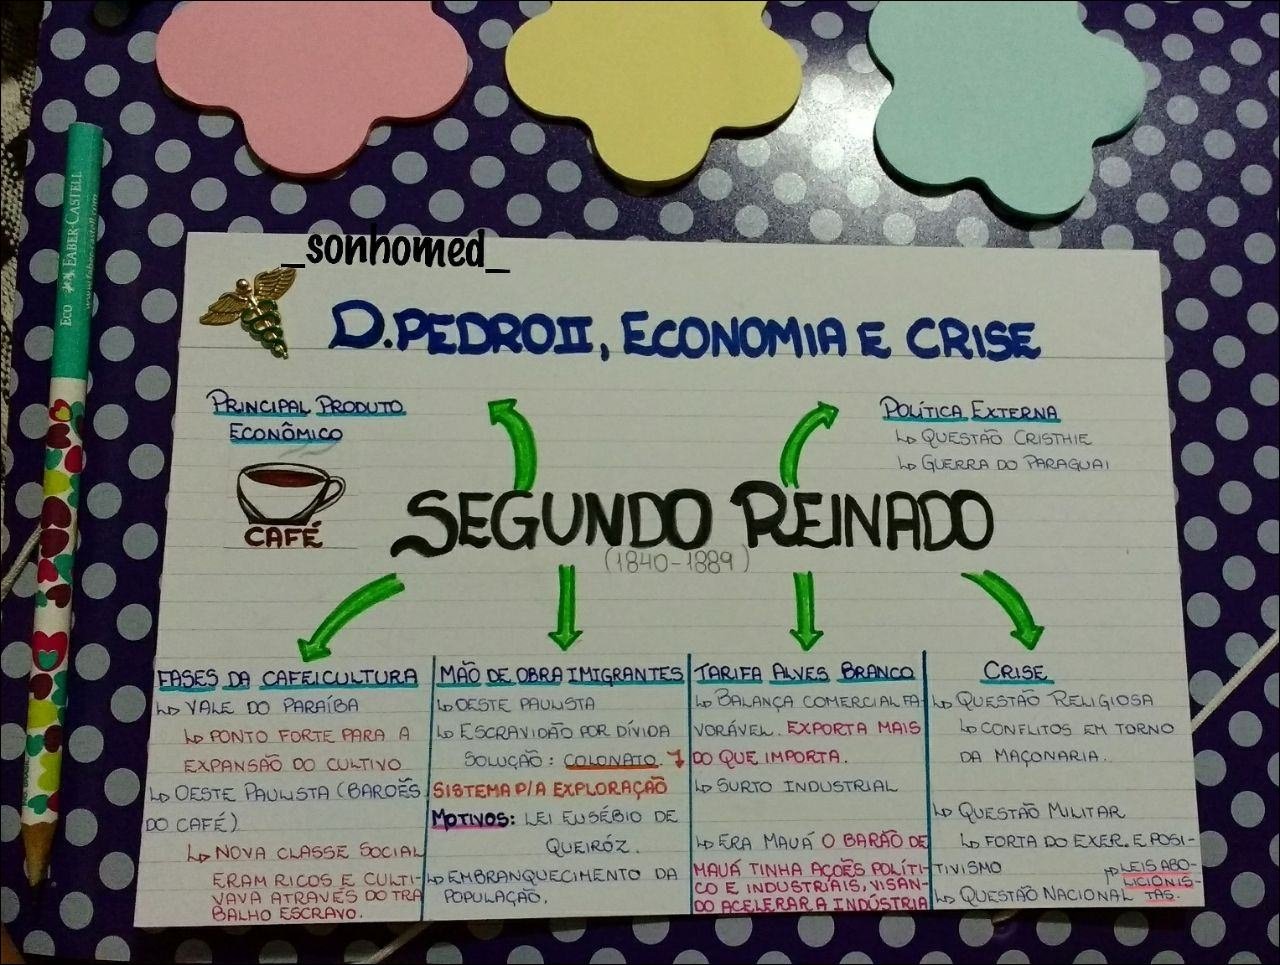 _sonhomed_
ECO FABER-CASTELL
www.faber-castell.com
D. PEDRO II, ECONOMIA E CRISE
PRINCIPAL PRODUTO
ECONÔMICO
CAFÉ
POLÍTICA EXTERNA
↳ QUESTÃO CRISTHIE
↳ GUERRA DO PARAGUAI
SEGUNDO REINADO
(1840-1889)
FASES DA CAFEICULTURA
↳ VALE DO PARAÍBA
↳ PONTO FORTE PARA A
EXPANSÃO DO CULTIVO
↳ OESTE PAULISTA (BAROĒS
DO CAFÉ)
↳ NOVA CLASSE SOCIAL
ERAM RICOS E CULTI-
VAVA ATRAVÉS DO TRA
BALHO ESCRAVO.
MÃO DE OBRA IMIGRANTES
↳ OESTE PAULISTA
↳ ESCRAVIDÃO POR DÍVIDA
SOLUÇÃO: COLONATO
SISTEMA P/A EXPLORAÇÃO
MOTIVOS: LEI EUSÉBIO DE
QUEIRÓZ.
↳ EMBRANQUECIMENTO DA
POPULAÇÃO.
TARIFA ALVES BRANCO
↳ BALANÇA COMERCIAL FA-
VORÁVEL. EXPORTA MAIS
DO QUE IMPORTA.
↳ SURTO INDUSTRIAL
↳ ERA MAUÁ O BARÃO DE
MAUÁ TINHA AÇOĒS POLÍTI-
CO E INDUSTRIAIS, VISAN-
DO ACELERAR A INDÚSTRIA
CRISE
↳ QUESTÃO RELIGIOSA
↳ CONFLITOS EM TORNO
DA MAÇONARIA.
↳ QUESTÃO MILITAR
↳ FORTA DO EXER. E POSI-
TIVISMO
↳ QUESTÃO NACIONAL
↳ LEIS ABO-
LICIONIS-
TAS.